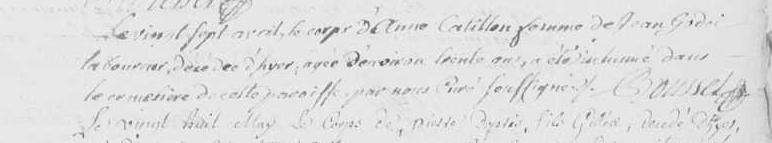 Le vint sept avril, le corps d'Anne Catillon femme de Jean
laboureur, decedee d'hyer, agee d'environ trente ans, a été inhumé dans
le cemetiere de cette paroisse par nous Curé soussigné.
Le vingt huit May le Corps de fils decedé d'hyer,